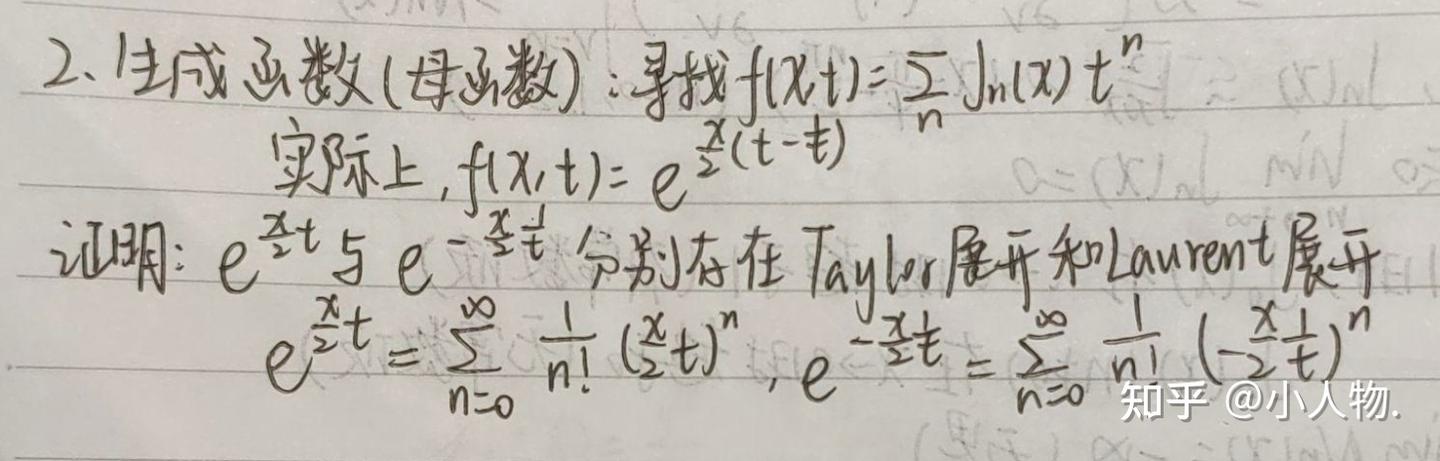 2、生成函数(母函数):寻找f(x,t)=∑_n Jn(x) t^n
实际上,f(x,t)=e^{\frac{x}{2}(t-\frac{1}{t})}
证明: e^{\frac{x}{2}t}与e^{-\frac{x}{2}\frac{1}{t}}分别存在Taylor展开和Laurent展开
e^{\frac{x}{2}t}=∑_{n=0}^{∞} \frac{1}{n!}(\frac{x}{2}t)^n, e^{-\frac{x}{2}\frac{1}{t}}=∑_{n=0}^{∞} \frac{1}{n!}(-\frac{x}{2}\frac{1}{t})^n
知乎 @小人物.